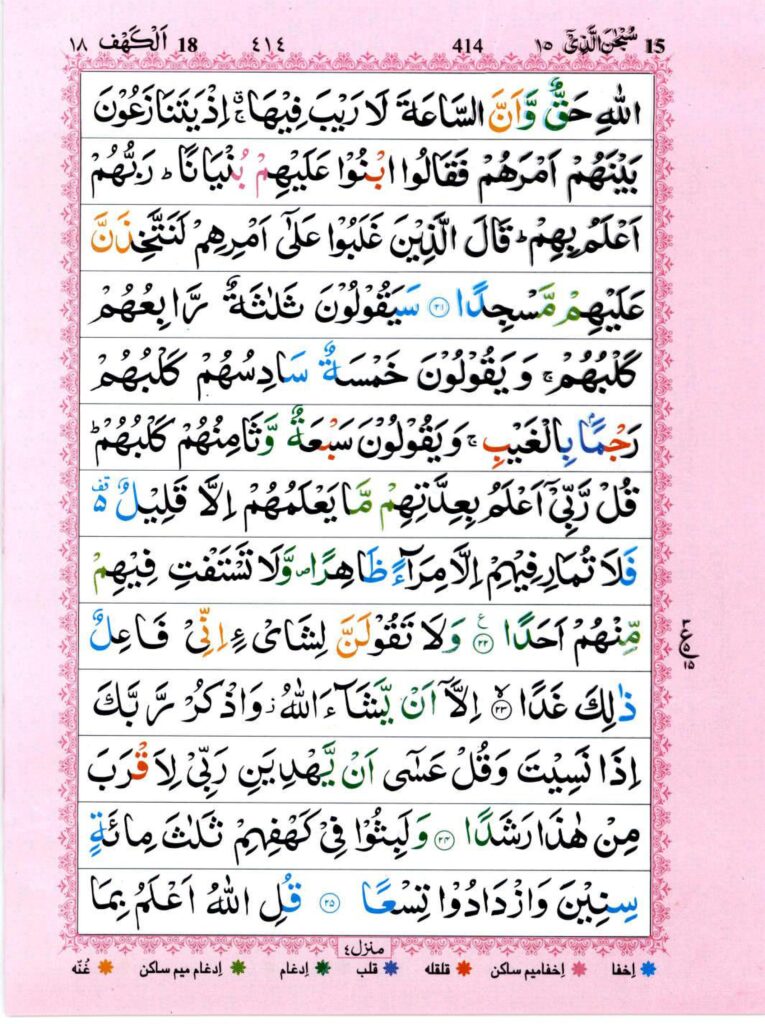 15 سُبْحٰنَ الَّذِیْۤ ۱۵ 414 ٤١٤ 18 اَلْكَهْف ۱۸
اللّٰهِ حَقٌّ وَّاَنَّ السَّاعَةَ لَا رَیْبَ فِیْهَا ۚۗ اِذْ یَتَنَازَعُوْنَ
بَیْنَهُمْ اَمْرَهُمْ فَقَالُوا ابْنُوْا عَلَیْهِمْ بُنْیَانًا ؕ رَبُّهُمْ
اَعْلَمُ بِهِمْ ؕ قَالَ الَّذِیْنَ غَلَبُوْا عَلٰۤی اَمْرِهِمْ لَنَتَّخِذَنَّ
عَلَیْهِمْ مَّسْجِدًا ﴿۲۱﴾ سَیَقُوْلُوْنَ ثَلٰثَةٌ رَّابِعُهُمْ
كَلْبُهُمْ ۚ وَ یَقُوْلُوْنَ خَمْسَةٌ سَادِسُهُمْ كَلْبُهُمْ
رَجْمًۢا بِالْغَیْبِ ۚ وَ یَقُوْلُوْنَ سَبْعَةٌ وَّثَامِنُهُمْ كَلْبُهُمْ ؕ
قُلْ رَّبِّیْۤ اَعْلَمُ بِعِدَّتِهِمْ مَّا یَعْلَمُهُمْ اِلَّا قَلِیْلٌ ۵ۗ قف
فَلَا تُمَارِ فِیْهِمْ اِلَّا مِرَآءً ظَاهِرًا ۪ وَّلَا تَسْتَفْتِ فِیْهِمْ
مِّنْهُمْ اَحَدًا ﴿۲۲﴾ ع وَلَا تَقُوْلَنَّ لِشَایْءٍ اِنِّیْ فَاعِلٌ
ذٰلِكَ غَدًا ﴿۲۳﴾ ۙ اِلَّاۤ اَنْ یَّشَآءَ اللّٰهُ ؗ وَاذْكُرْ رَّبَّكَ
اِذَا نَسِیْتَ وَقُلْ عَسٰۤی اَنْ یَّهْدِیَنِ رَبِّیْ لِاَقْرَبَ
مِنْ هٰذَا رَشَدًا ﴿۲۴﴾ وَلَبِثُوْا فِیْ كَهْفِهِمْ ثَلٰثَ مِائَةٍ
سِنِیْنَ وَازْدَادُوْا تِسْعًا ﴿۲۵﴾ قُلِ اللّٰهُ اَعْلَمُ بِمَا
منزل ٤
اِخفا اِخفامیم ساکن قلقله قلب اِدغام اِدغام میم ساکن غُنّه